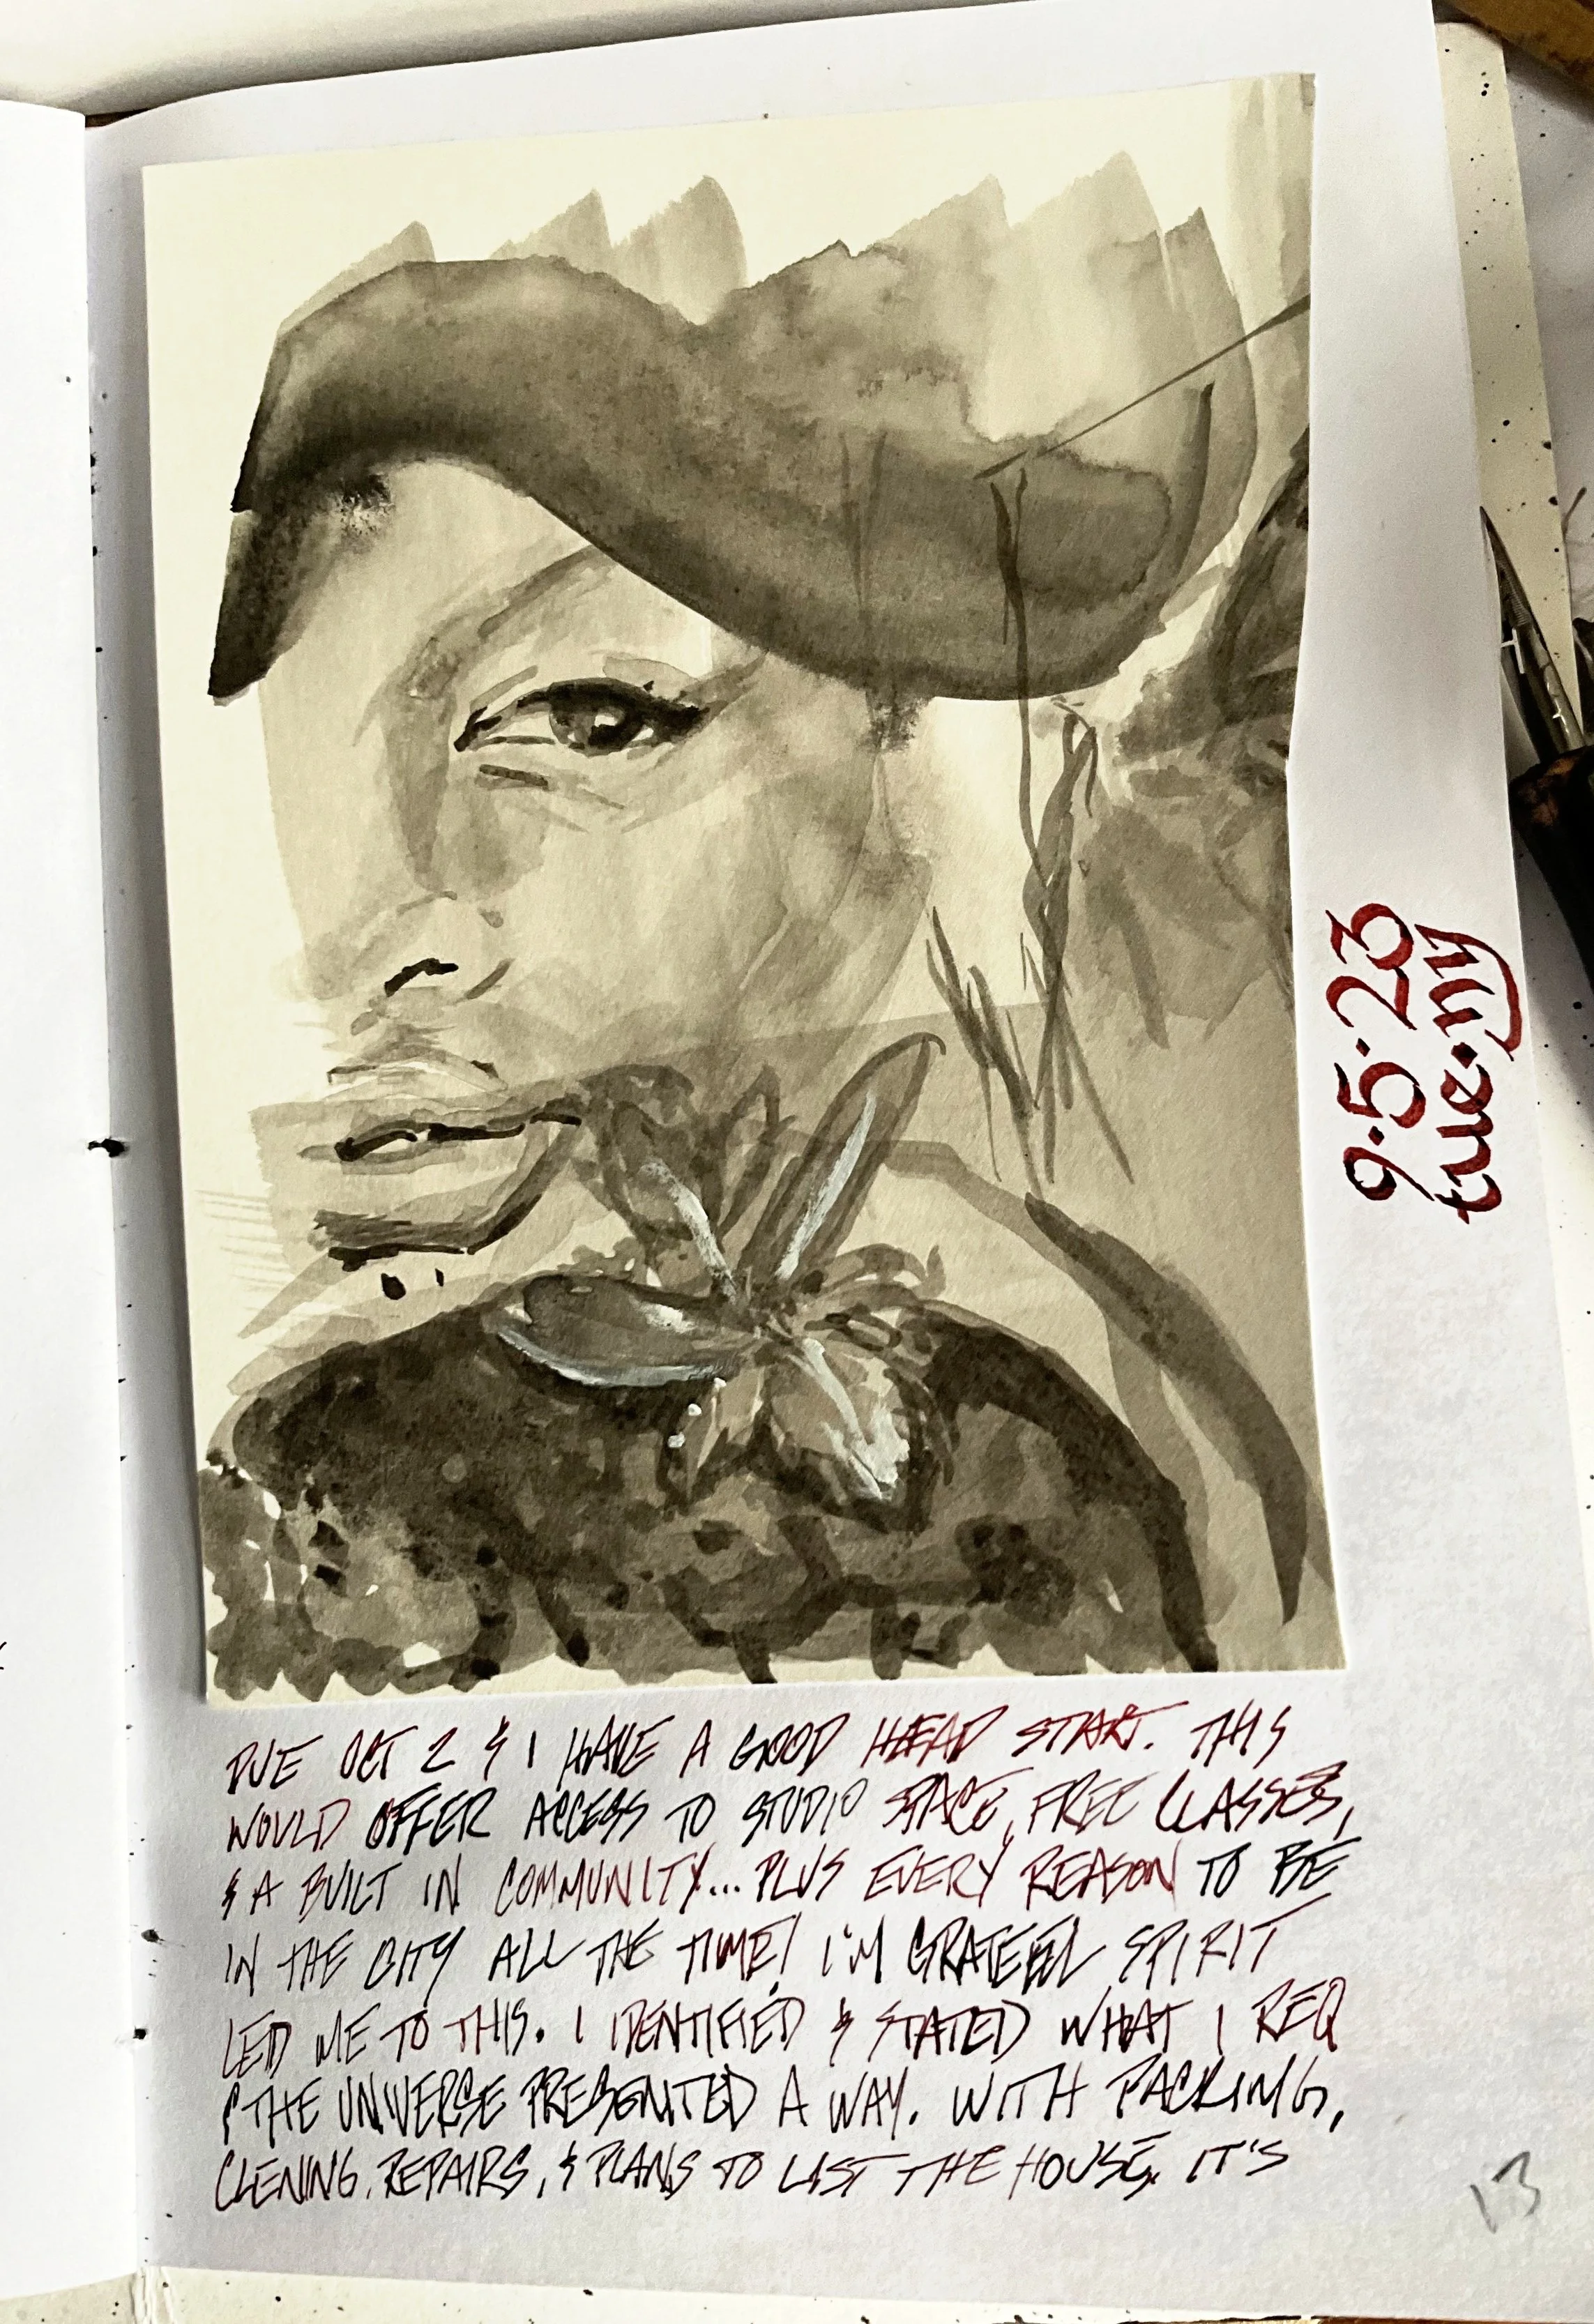 9.5.23
tue.ny
DUE OCT 2 & I HAVE A GOOD HEAD START. THIS
WOULD OFFER ACCESS TO STUDIO SPACE, FREE CLASSES,
& A BUILT IN COMMUNITY... PLUS EVERY REASON TO BE
IN THE CITY ALL THE TIME! I'M GRATEFUL SPIRIT
LED ME TO THIS. I IDENTIFIED & STATED WHAT I REQ
& THE UNIVERSE PRESENTED A WAY. WITH PACKING,
CLENING, REPAIRS, & PLANS TO LIST THE HOUSE, IT'S
13